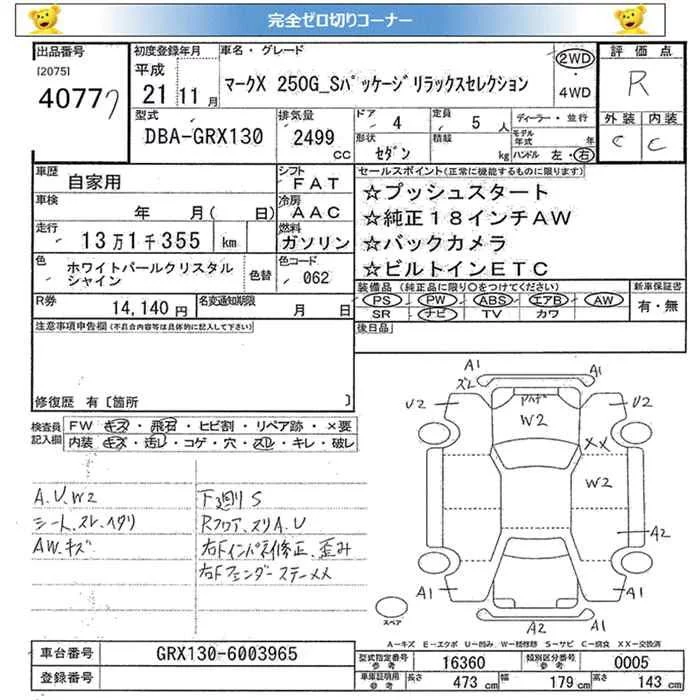 完全ゼロ切りコーナー
出品番号 [2075] 40777
初度登録年月 平成 21年 11月
車名・グレード マークX 250G_Sパッケージリラックスセレクション
2WD・4WD
評価点 R
外装 C 内装 C
型式 DBA-GRX130
排気量 2499 CC
ドア 4 定員 5 人
形状 セダン 積載 kg
ディーラー・並行
モデル年式 年
ハンドル 左・右
車歴 自家用
シフト FAT
車検 年 月( 日)
冷房 AAC
走行 13万1千355 km
燃料 ガソリン
色 ホワイトパールクリスタルシャイン
色替
色コード 062
R券 14,140円
名変通知期限 月 日
セールスポイント(正常に機能するものに限ります)
☆プッシュスタート
☆純正18インチAW
☆バックカメラ
☆ビルトインETC
装備品(純正品に限り○をつけてください)
PS PW ABS エアB AW
SR ナビ TV カワ
新車保証書 有・無
後日品
注意事項申告欄(不具合内容等は具体的に記入して下さい)
修復歴 有〔箇所 〕
検査員記入欄
FW キズ・飛石・ヒビ割・リペア跡・×要
内装 キズ・汚レ・コゲ・穴・スレ・キレ・破レ
A.U.W2
シート.スレ.ヘタリ
AW.キズ
下廻りS
Rフロア.スリA.U
右Fインパネ修正.歪み
右Fフェンダーステー××
A1 A1
ズレ
U2 U2
W2
××
W2
A2
A1 A1
A2 A1
スペア
A－キズ E－エクボ U－凹み W－補修跡 S－サビ C－腐食 XX－交換済
車台番号 GRX130-6003965
登録番号
型式指定番号 参考 16360
類別区分番号 参考 0005
車庫証明用 参考 長さ 473 cm 幅 179 cm 高さ 143 cm